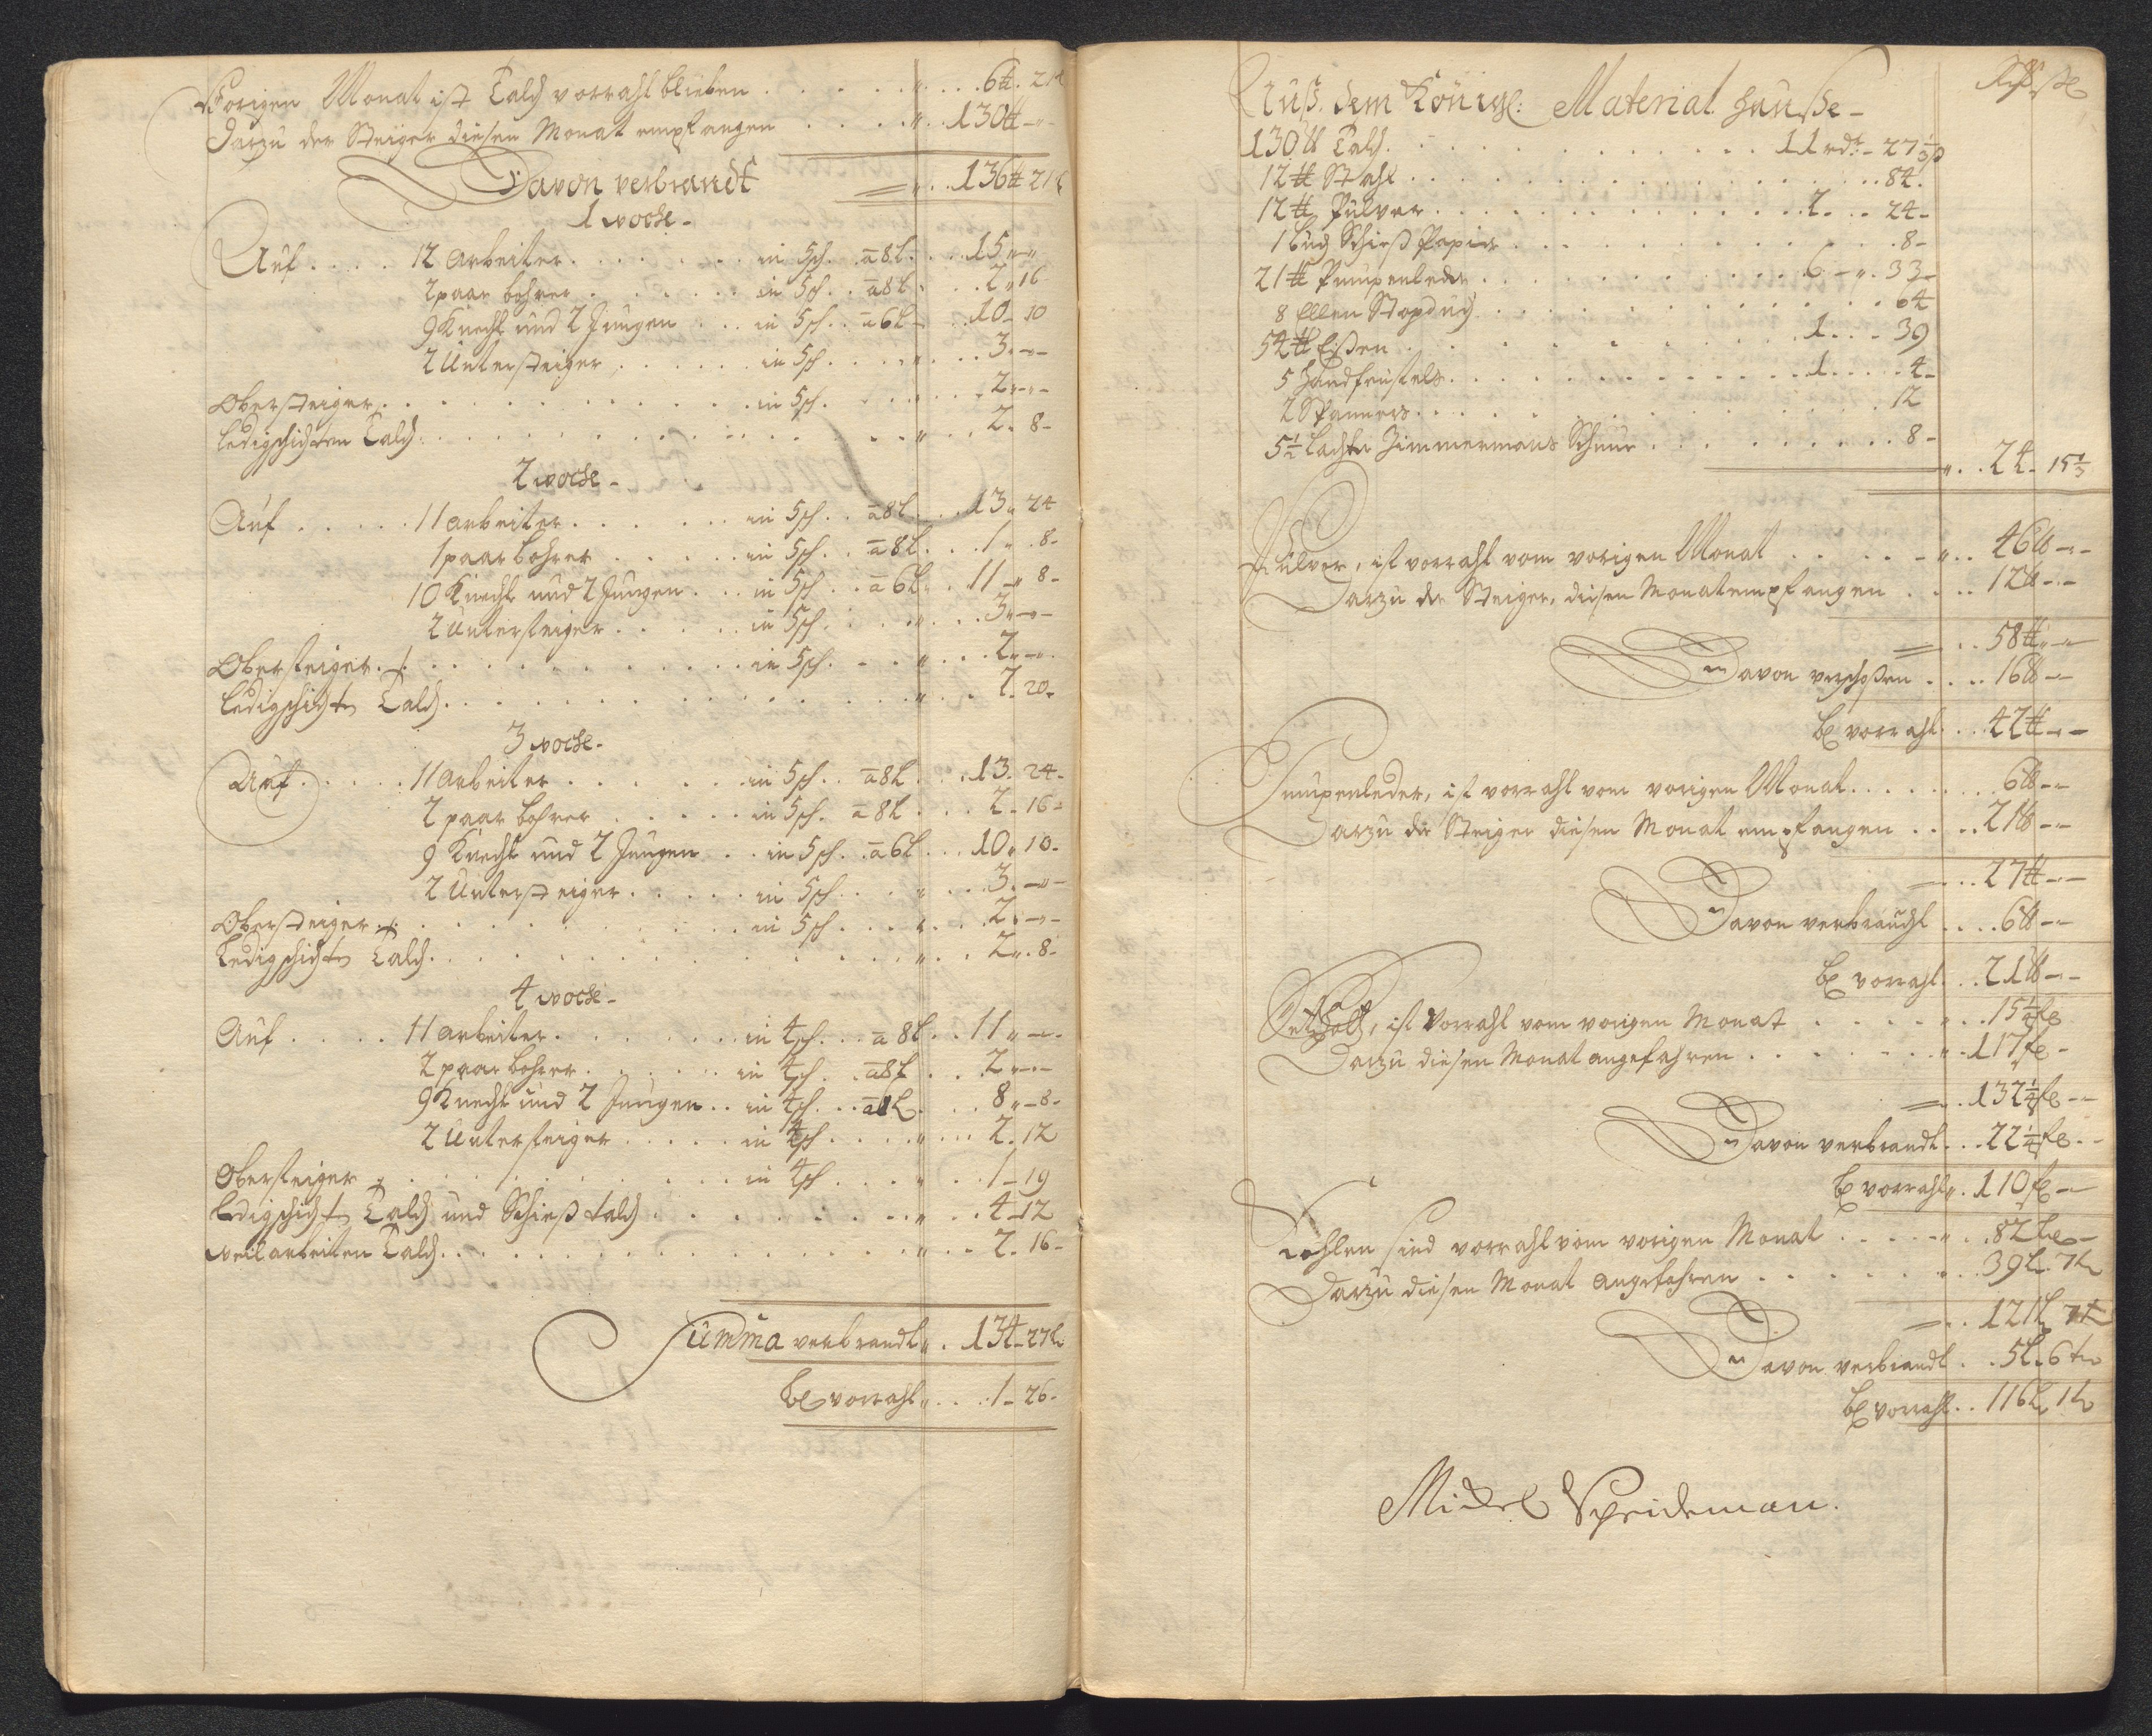 Vorigen Monat ist Talch vorraht blieben . . . . " . . 6 ℔. 21 l
Darzu der Steiger diesen Monat empfangen . . . " . . 130 ℔ - "-
Davon verbrandt = " . . 136 ℔ 21 l
1 woche -
Auf . . . . 12 Arbeiter . . . . . . in 5 sch. . a 8 l . . . 15 " "
2 paar bohrer . . . . . . in 5 sch. . a 8 l . . . 2 " 16
9 Knecht und 2 Jungen . . . in 5 sch. . a 6 l - . . 10 - 10
2 Untersteiger . . . . . . in 5 sch. . . . " . . . 3. - " -
Obersteiger . . . . . . . . . . . in 5 sch. . . . " . . . 2 " - " -
ledigschichten Talch . . . . . . . . . . . . . . " . . 2. 8 -
2 woche -
Auf . . . . . 11 arbeiter . . . . . . in 5 sch. . a 8 l . . . 13 " 24
1 paar bohrer . . . . . in 5 sch. . a 8 l . . . 1 " . 8 -
10 Knecht und 2 Jungen . . . in 5 sch. . a 6 l . . 11 - " 8 -
2 Untersteiger . . . . . in 5 sch. . . . " . . . 3 " - " -
Obersteiger . . . . . . . . . . . in 5 sch. . . . " . . . 2 " - " .
Ledigschichten Talch . . . . . . . . . . . . . " . . . 2. 20 -
3 woche -
Auf . . . . . 11 Arbeiter . . . . . . in 5 sch. . a 8 l . . . 13. 24 -
2 paar bohrer . . . . . in 5 sch. a 8 l . . . 2 - 16 -
9 Knecht und 2 Jungen . . in 5 sch. . a 6 l . . . 10 " 10 -
2 Untersteiger . . . . . in 5 sch. . . . " . . . 3. - " -
Obersteiger . . . . . . . . . . . in 5 sch. . . . " . . . 2. - " -
Ledigschichten Talch . . . . . . . . . . . . . " . . . 2 " . 8 -
4 woche -
Auf . . . . 11 arbeiter . . . . . . . in 4 sch. . . a 8 l . . 11 " - " -
2 paar bohrer . . . . . . in 4 sch. . a 8 l . . . 2 " - " -
9 Knecht und 2 Jungen . . in 4 sch. . . a 6 l . . . 8 " - 8 -
2 Untersteiger . . . . . in 4 sch. . . . " . . . 2. 12
Obersteiger . . . . . . . . . . . in 4 sch . . . " . . . 1 - 19
Ledigschichten Talch und Schieß talch . . . . . . . . " . . 4 - 12
weilarbeiten Talch . . . . . . . . . . . . . . " . . . 2. 16 -
Summa verbrandt " . 134 - 27 l
bl vorraht " . . . 1 - 26 -
Auß dem Königl: Material hauße -
130 ℔ Talch . . . . . . . . . . . 11 rdr - 27 1/3 ß
12 ℔ Stahl . . . . . . . . . . . . . . 84.
12 ℔ Pulver . . . . . . . . . . . . 2. . . 24 -
1 buch Schieß Papier . . . . . . . . . . . . 8 -
21 ℔ Pumpenleder . . . . . . . . . . 6 - " . 33 -
8 Ellen Stopduch . . . . . . . . . . . . 64
54 ℔ Eißen . . . . . . . . . . . . 1 . . . 39
5 handfeustels . . . . . . . . . . . 1 . . . . 4 -
2 Spanners . . . . . . . . . . . . . . 12
5 1/2 Lachter Zimmermans Schnur . . . . . . . . 8 -
" . . 24 - 15 1/3
Pulver, ist vorraht vom vorigen Monat . . . . . - " . . 46 ℔ - " -
Darzu der Steiger, diesen Monat empfangen . . . . 12 ℔ - " -
= . . 58 ℔ " - " -
Davon verschoßen . . . . 16 ℔ - " -
bl vorraht . . . 42 ℔ - " -
Pumpenleder, ist vorraht vom vorigen Monat . . . . . . . . . 6 ℔ - " -
Darzu der Steiger diesen Monat empfangen . . . . 21 ℔ - " -
= . . 27 ℔ - " -
Davon verbraucht . . . . 6 ℔ - " -
bl vorraht . . . 21 ℔ - " -
Setzholtz, ist Vorraht vom vorigen Monat . . . . . " . . 15 1/4 fl
Darzu diesen Monat angefahren . . . . . . . " . 117 fl -
= . . 132 1/4 fl - "
Davon verbrandt . . . 22 1/4 fl . .
bl vorraht " . 110 fl - "
Kohlen sind vorraht vom vorigen Monat . . . . . " . . 82 l -
Darzu diesen Monat angefahren . . . . . . " . . . 39 l. 7 t
= . . 121 l 7 t
Davon verbrandt . . . 5 l. 6 t
bl vorraht . . 116 l 1 t
Michel Speideman.